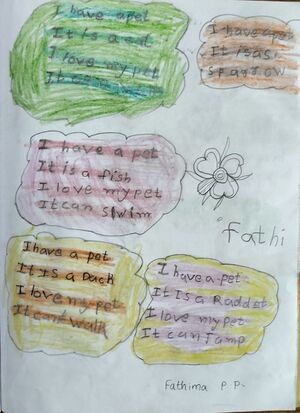 I have a pet
It is a cat
I love my pet
It can
I have a pet
It is a
sparrow
I have a pet
It is a fish
I love my pet
It can swim
Fathi
I have a pet
It Is a Duck
I love my pet
It can walk
I have a pet
It Is a Raddit
I love my pet
It can Jamp
Fathima P.P-